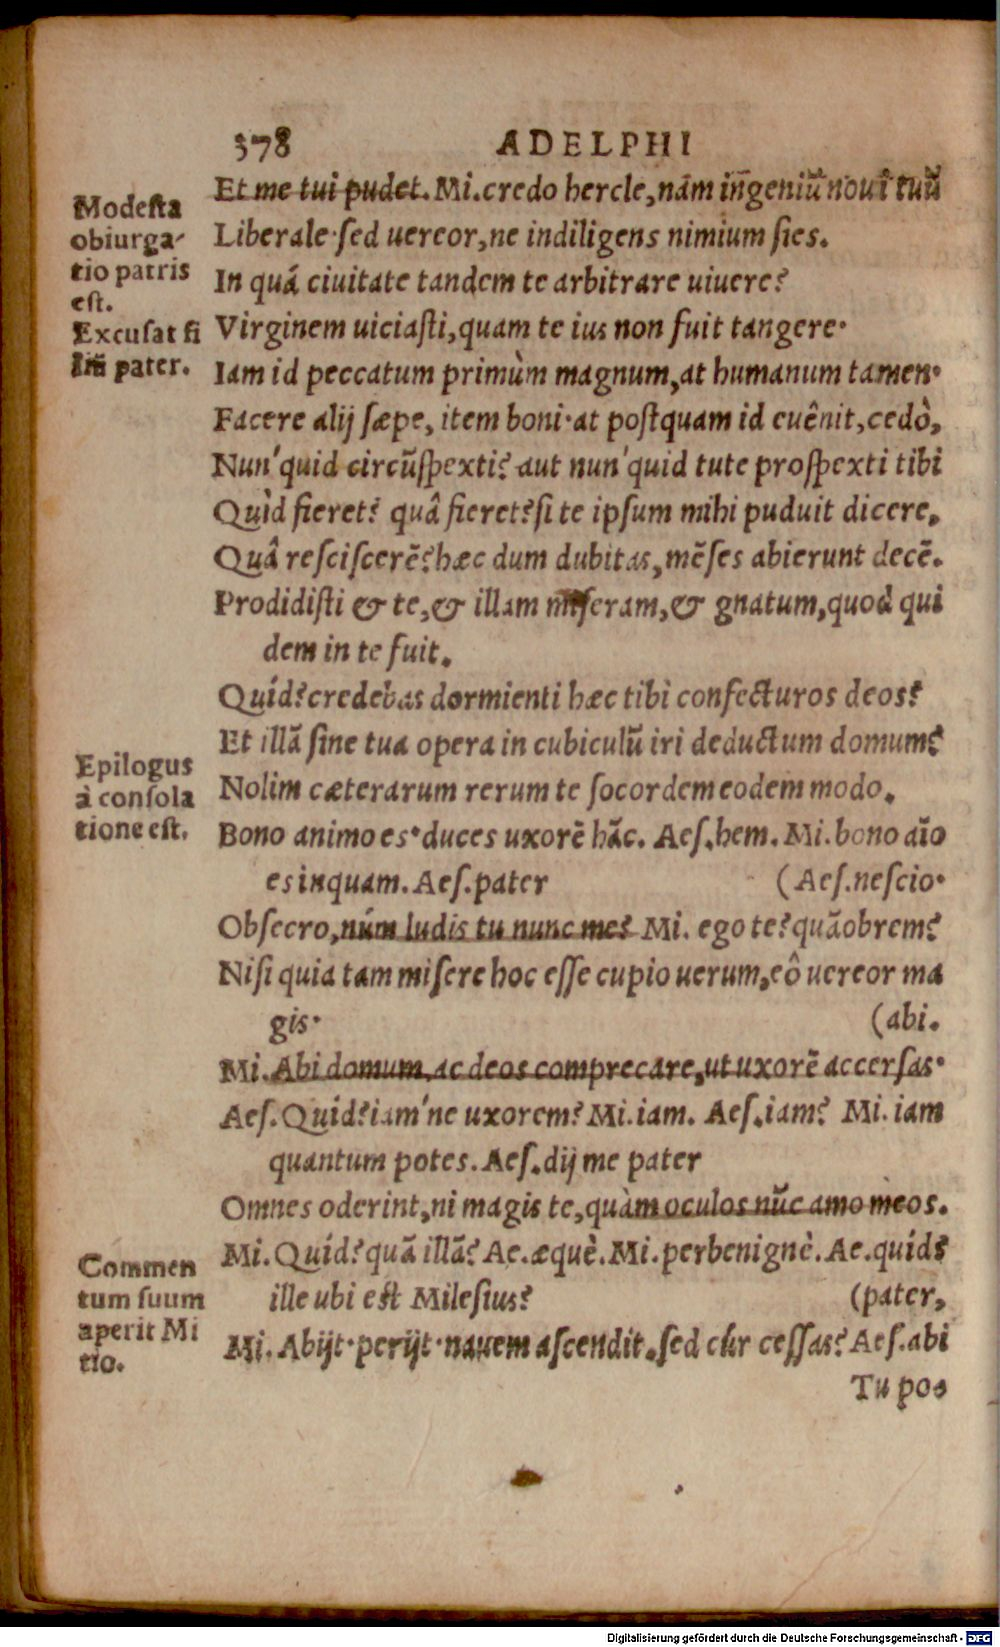 378 ADELPHI
Modesta
obiurga-
tio patris
est.
Excusat fi
liũ pater.
Et me tui pudet. Mi. credo hercle, nám ingeniũ noui tuũ
Liberale· sed uereor, ne indiligens nimium sies.
In quâ ciuitate tandem te arbitrare uiuere?
Virginem uiciasti, quam te ius non fuit tangere·
Iam id peccatum primùm magnum, at humanum tamen·
Facere alij sæpe, item boni· at postquam id euênit, cedò,
Nun'quid circũspexti? aut nun'quid tute prospexti tibi
Quìd fieret? quâ fieret? si te ipsum mihi puduit dicere,
Quâ resciscerẽ? hæc dum dubitas, mẽses abierunt decẽ.
Prodidisti & te, & illam miseram, & gnatum, quod qui
dem in te fuit.
Quíd? credebas dormienti hæc tibi confecturos deos?
Et illã sine tua opera in cubiculũ iri deductum domum?
Nolim cæterarum rerum te socordem eodem modo.
Epilogus
à consola
tione est.
Bono animo es· duces uxorẽ hãc. Aes. hem. Mi. bono aĩo
es inquam. Aes. pater (Aes. nescio·
Obsecro, núm ludis tu nunc me? Mi. ego te? quãobrem?
Nisi quia tam misere hoc esse cupio uerum, eô uereor ma
gis· (abi.
Mi. Abi domum, ac deos comprecare, ut uxorẽ accersas·
Aes. Quíd? iam'ne uxorem? Mi. iam. Aes. iam? Mi. iam
quantum potes. Aes. dij me pater
Omnes oderint, ni magis te, quàm oculos nũc amo meos.
Mi. Quíd? quã illã? Ae. æquè. Mi. perbenignè. Ae. quíd?
ille ubi est Milesius? (pater,
Commen
tum suum
aperit Mi
tio.
Mi. Abijt· perijt· nauem ascendit. sed cúr cessas? Aes. abi
Tu pos
Digitalisierung gefördert durch die Deutsche Forschungsgemeinschaft - DFG